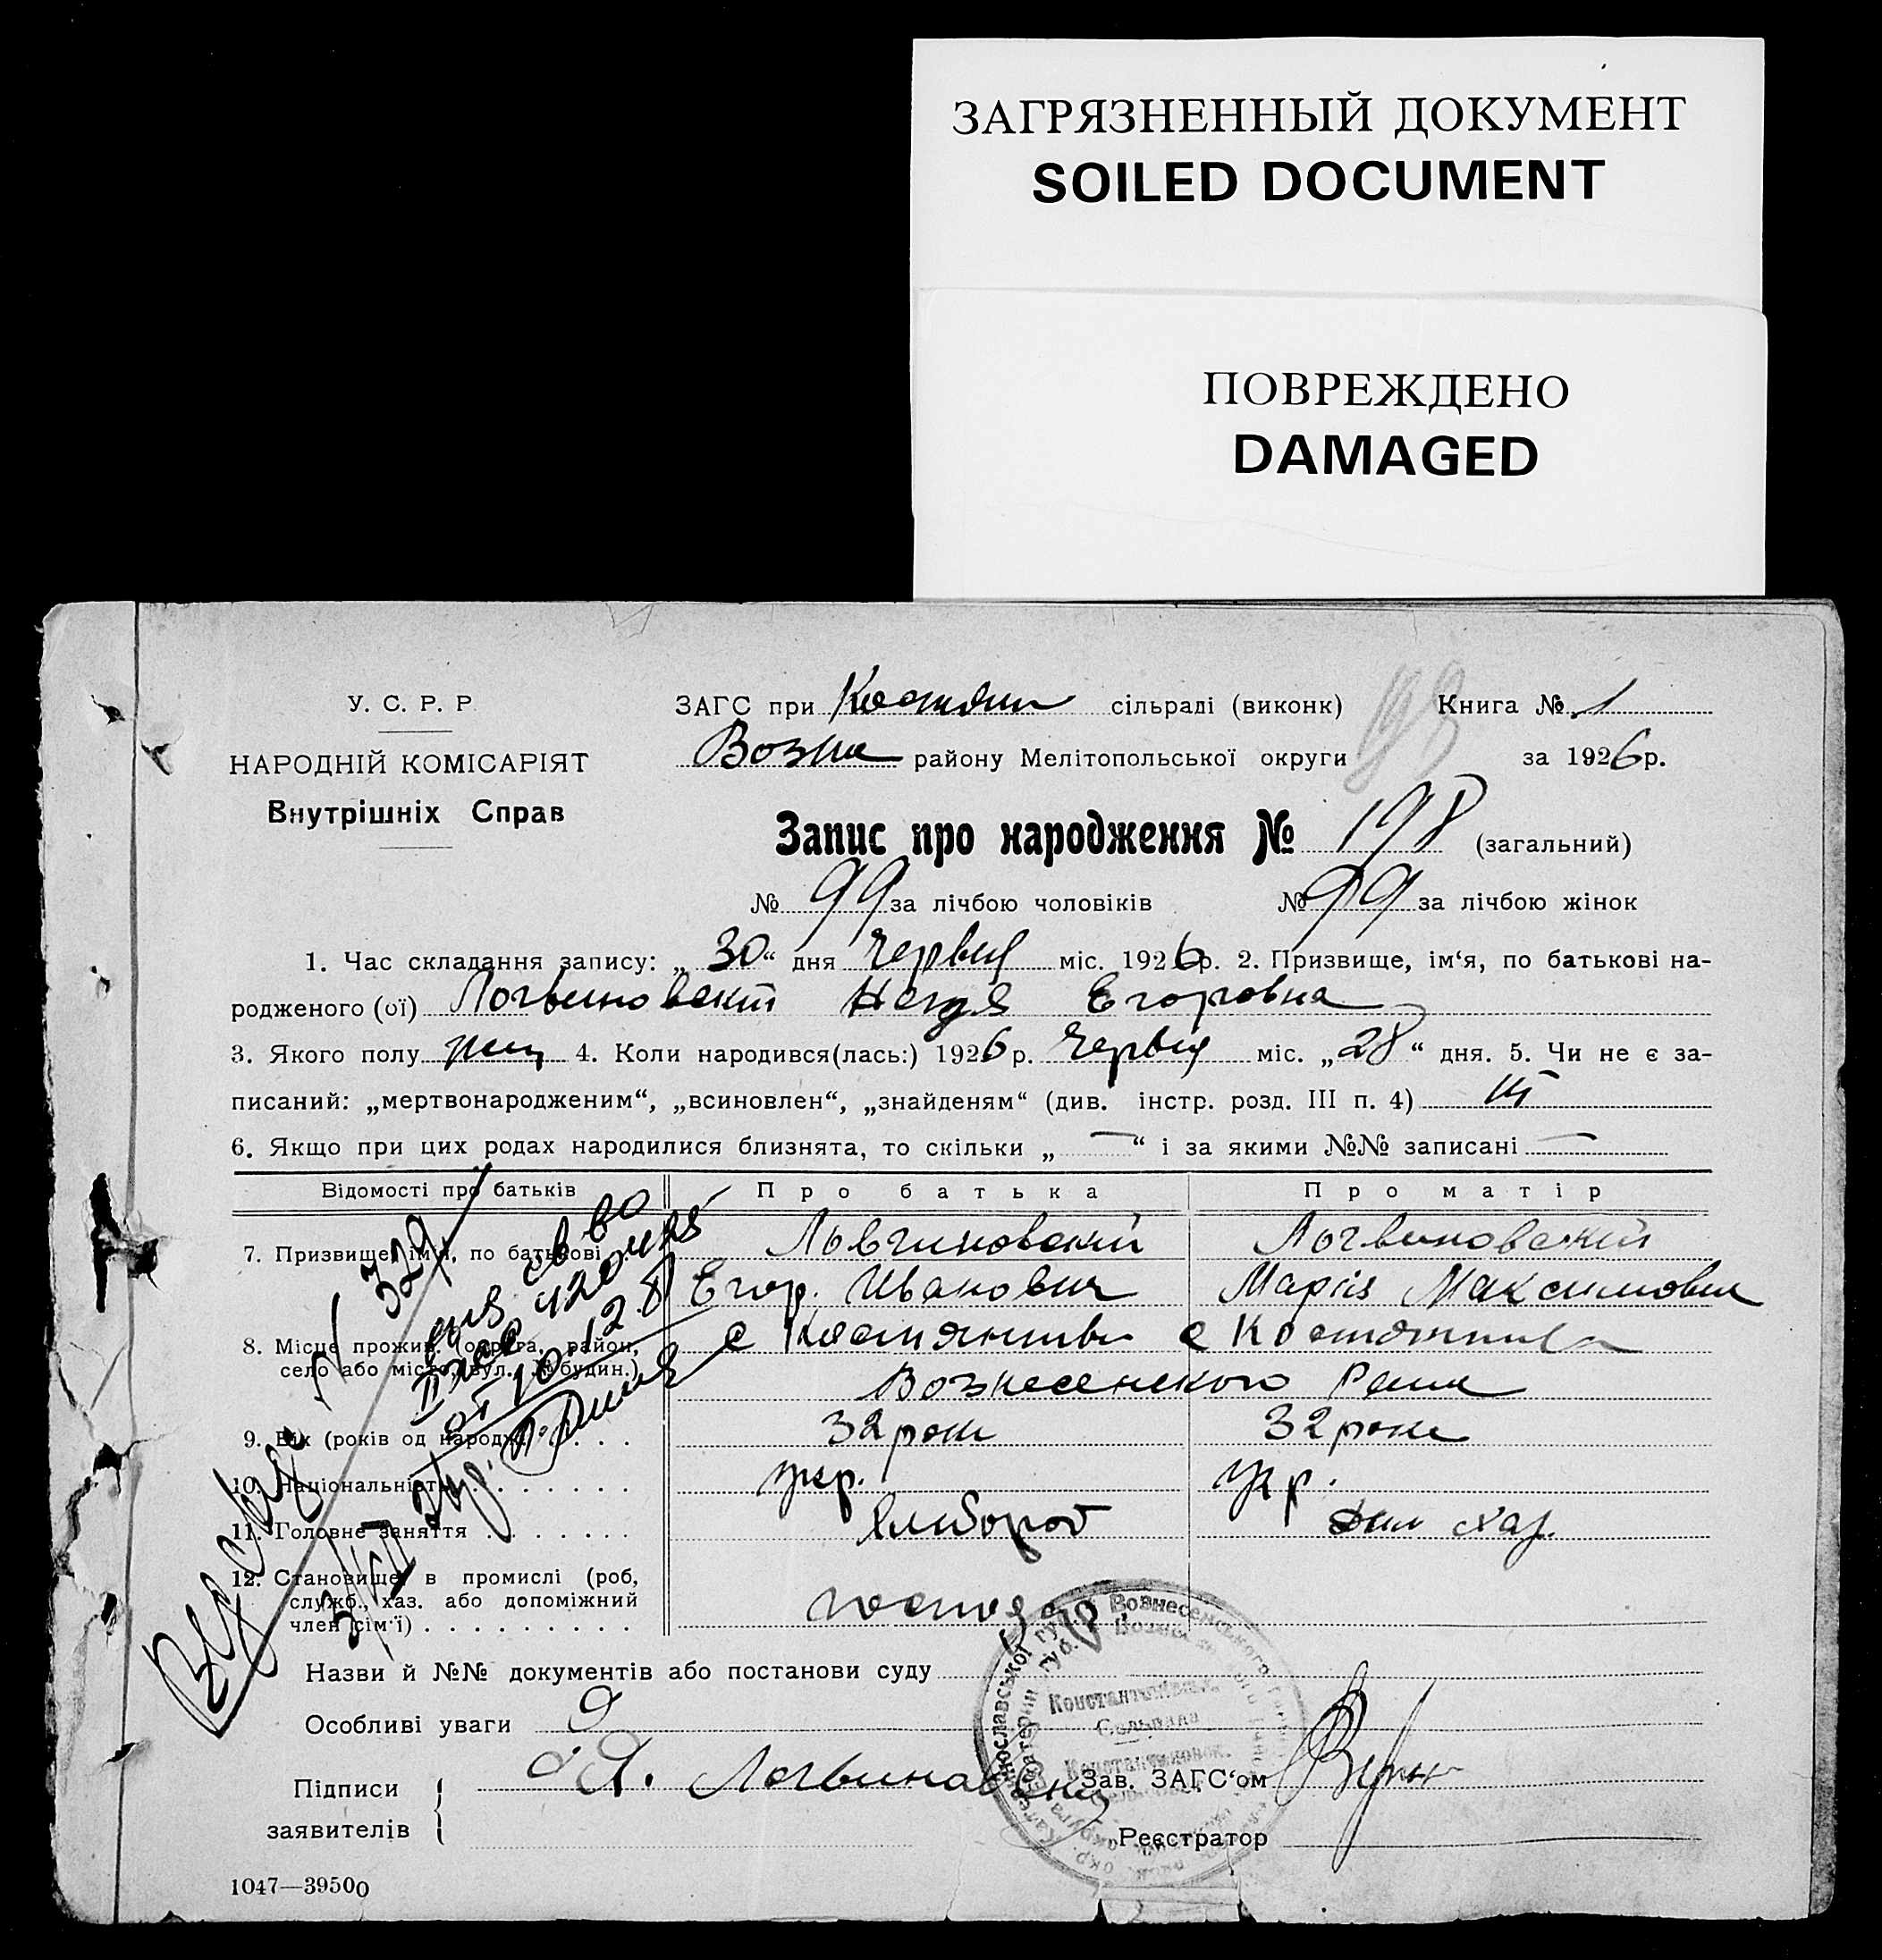 ЗАГРЯЗНЕННЫЙ ДОКУМЕНТ
SOILED DOCUMENT
ПОВРЕЖДЕНО
DAMAGED
У. С. Р. Р
НАРОДНІЙ КОМІСАРІЯТ
Внутрішніх Справ
ЗАГС при Костян сільраді (виконк) Книга № 1
Возне району Мелітопольської округи за 1926р.
198
Запис про народження № 198 (загальний)
№ 99 за лічбою чоловіків № 99 за лічбою жінок
1. Час складання запису: „30“ дня Червня міс. 1926р. 2. Призвище, ім'я, по батькові на-
родженого (ої) Логвиновскій Надя Егоровна
3. Якого полу жин 4. Коли народився(лась:) 1926 р. Червня міс. „28“ дня. 5. Чи не є за-
писаний: „мертвонародженим“, „всиновлен“, „знайденям“ (див. інстр. розд. III п. 4)
6. Якщо при цих родах народилися близнята, то скільки „—“ і за якими №№ записані —
Відомості про батьків Про батька Про матір
7. Призвище, ім'я, по батькові Ловгиновскій Логвиновскій
Егор. Иванович Марія Максимовн
8. Місце прожив. (округа, район, село або місто, вул. № будин.) с Костянтив с Костянтив
Вознесенского Раина
9. Вік (років од народж.) 32 роки 32 роки
10. Національність укр. укр.
11. Головне заняття Хлибороб дом хаз.
12. Становище в промислі (роб, служб., хаз. або допоміжний член сім'ї) господар
Назви й №№ документів або постанови суду
Особливі уваги
Підписи
заявителів
Я. Логвиновский
Зав. ЗАГС'ом
Реєстратор
1047—39500